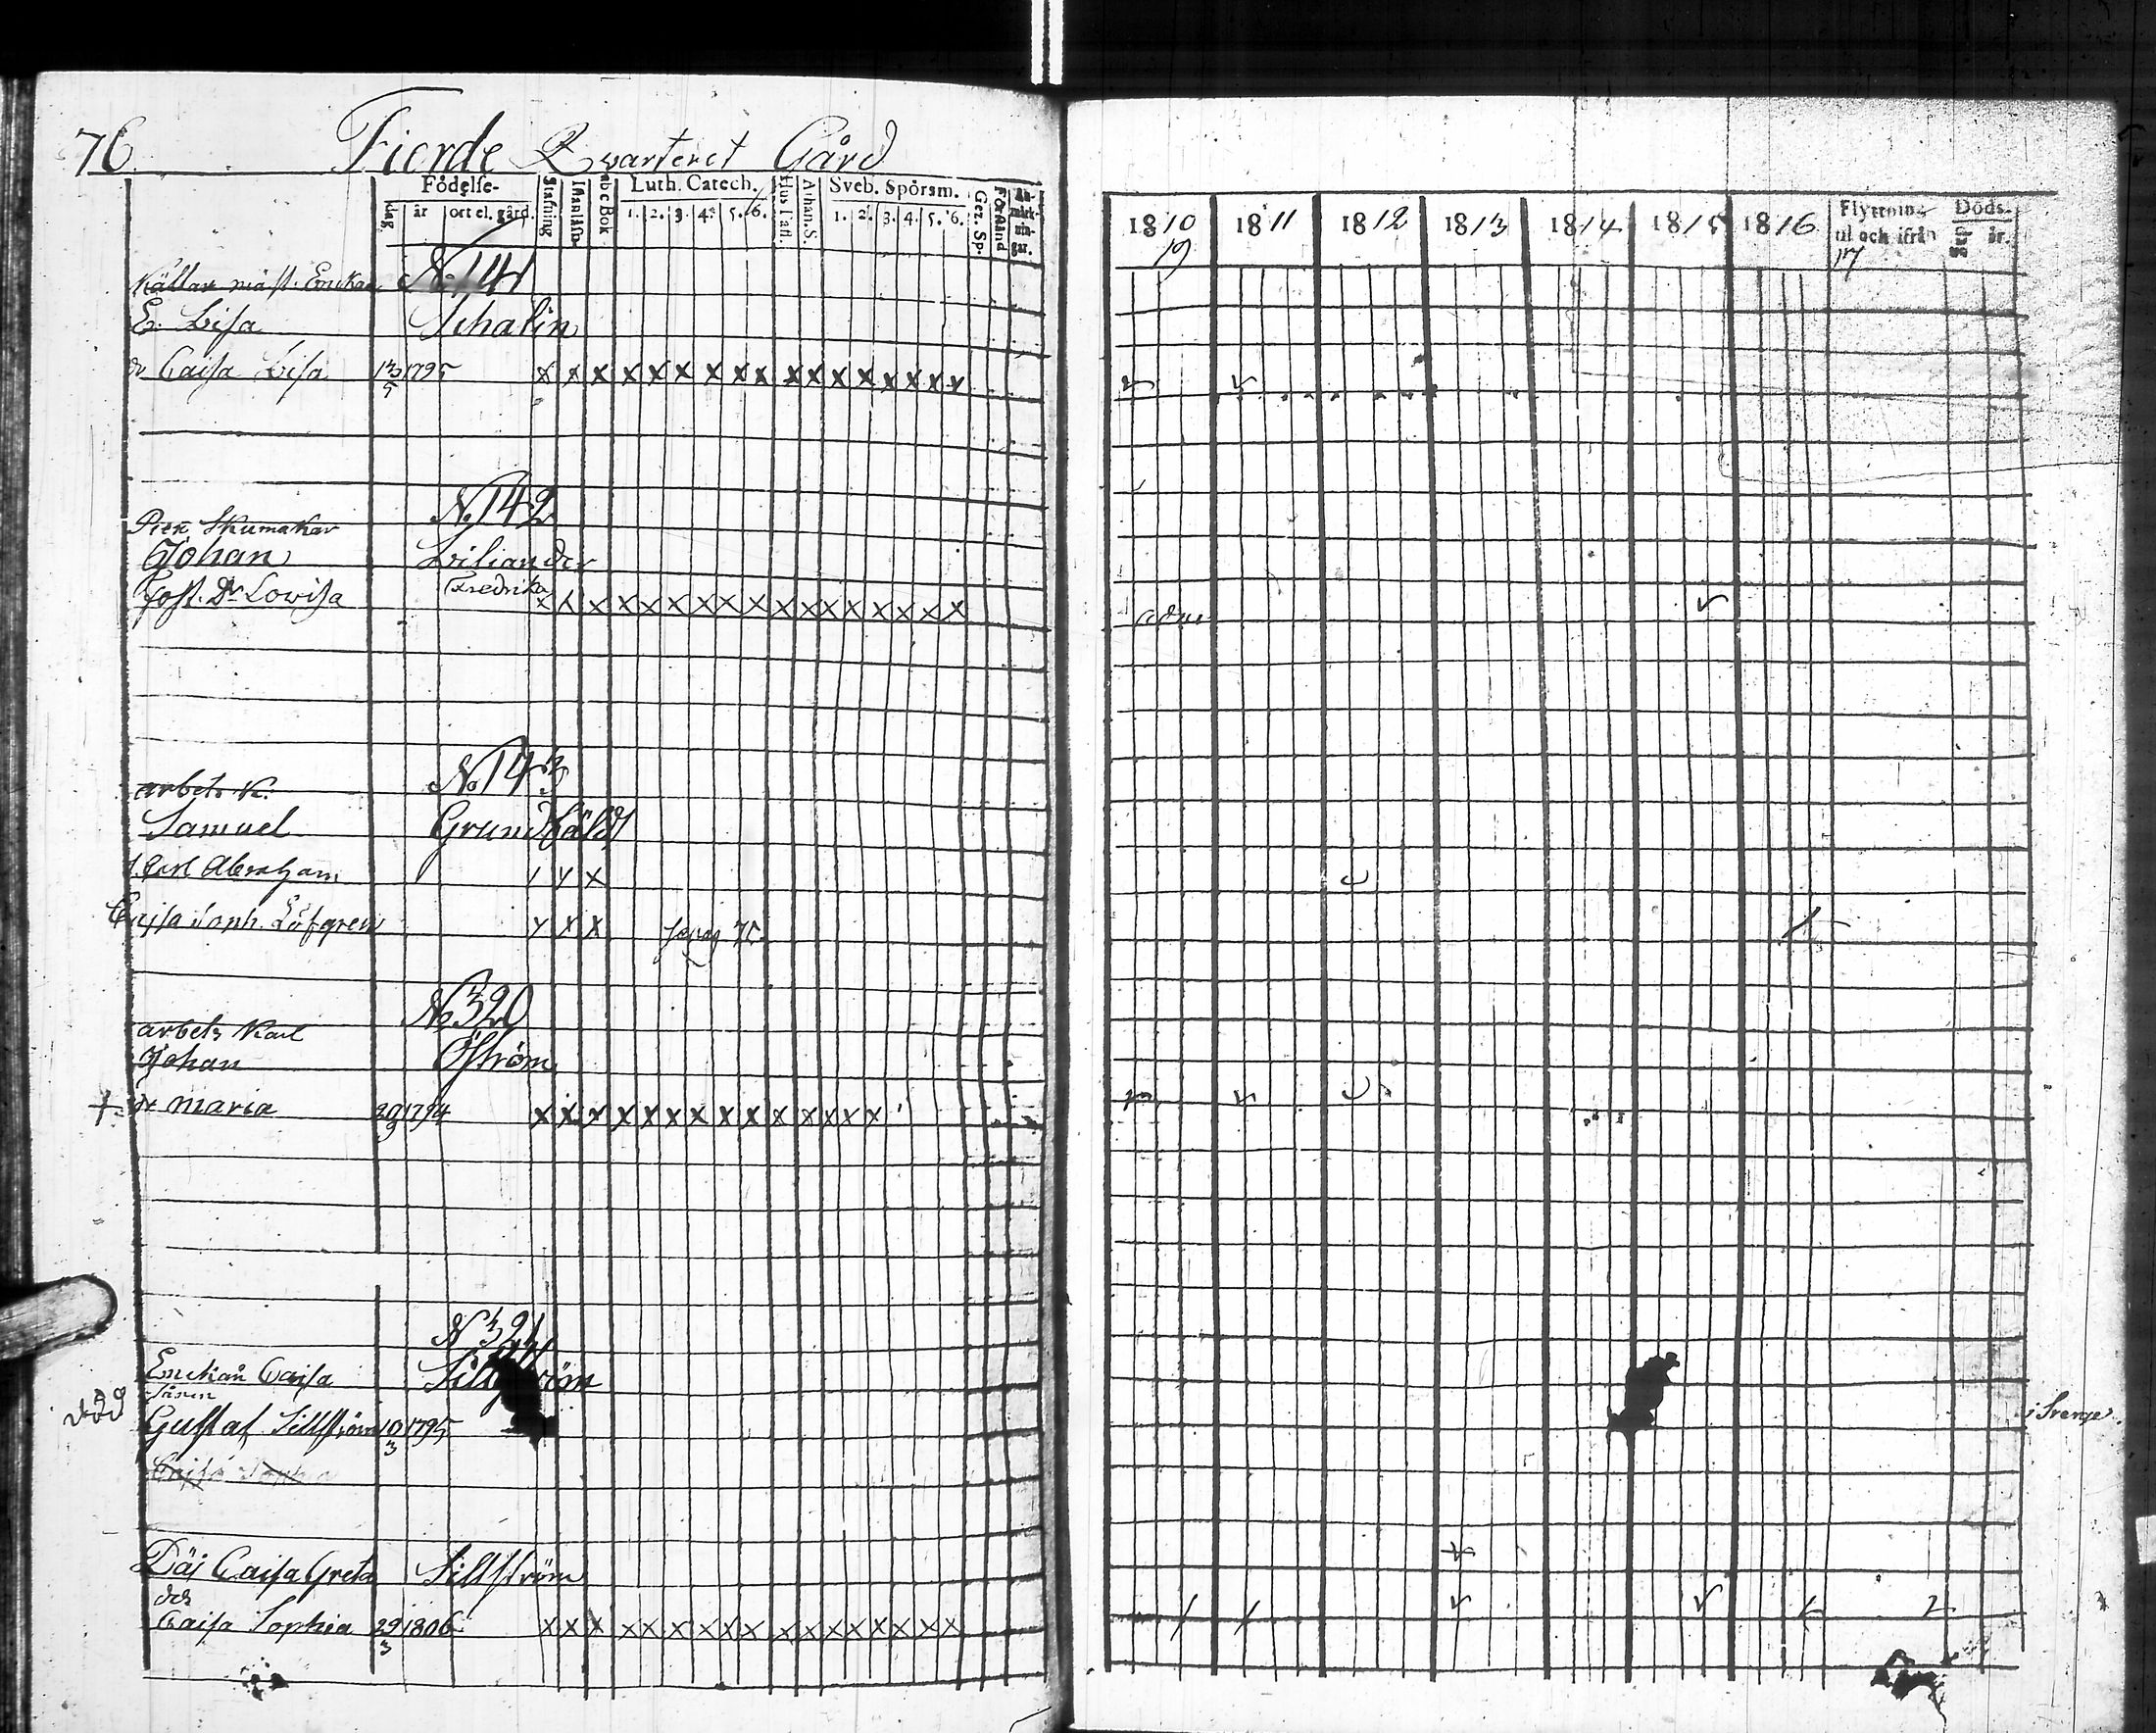 76. Fierde Qvarteret Gård
Födelse- Stafning Innanläsn. abc Bok Luth. Catech. Hus Tafl. Athan. S. Sveb. Spörsm. Gez. Sp. Förstånd An-märk-nin-gar.
dag år ort el. gård. 1. 2. 3. 4. 5. 6. 1. 2. 3. 4. 5. 6.
1810 1811 1812 1813 1814 1815 1816 Flyttning til och ifrån Döds- dag år.
19 17
Källar mäst. Enkan No 141
E. Lisa Schalin
dr Caisa Lisa 13/5 1795 x x x x x x x x x x x x x x x x x
No 142
Skumakar
Johan Liliander
Fost. Dr Lovisa Fredrika x x x x x x x x x x x x x x x x x
No 143
arbets K.
Samuel
s. Carl Abraham
Caisa Soph. Löfgren x x x pag 75
No 320
arbets Karl
Johan Öström
+ dr Maria 29/9 1794 x x x x x x x x x x x x x x
No 321
Enckan Caisa
Sånen
död Gustaf Sillström 10/3 1795 i Sverge
Caisa Sophia
Däj Caisa Greta Sillström
dr
Caisa Sophia 29/3 1806 x x x x x x x x x x x x x x x x x